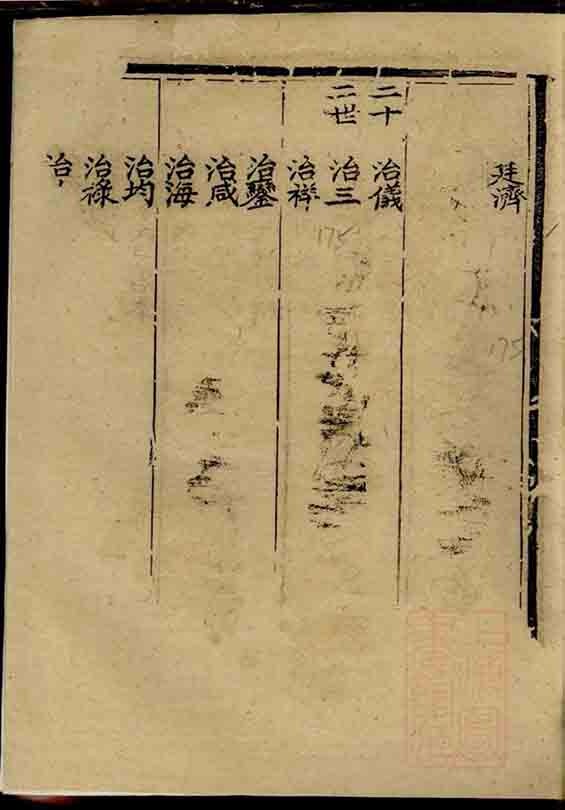 廷濟
二十 治儀
二世 治三
治祥
治鑾
治咸
治海
治均
治祿
治
175
175